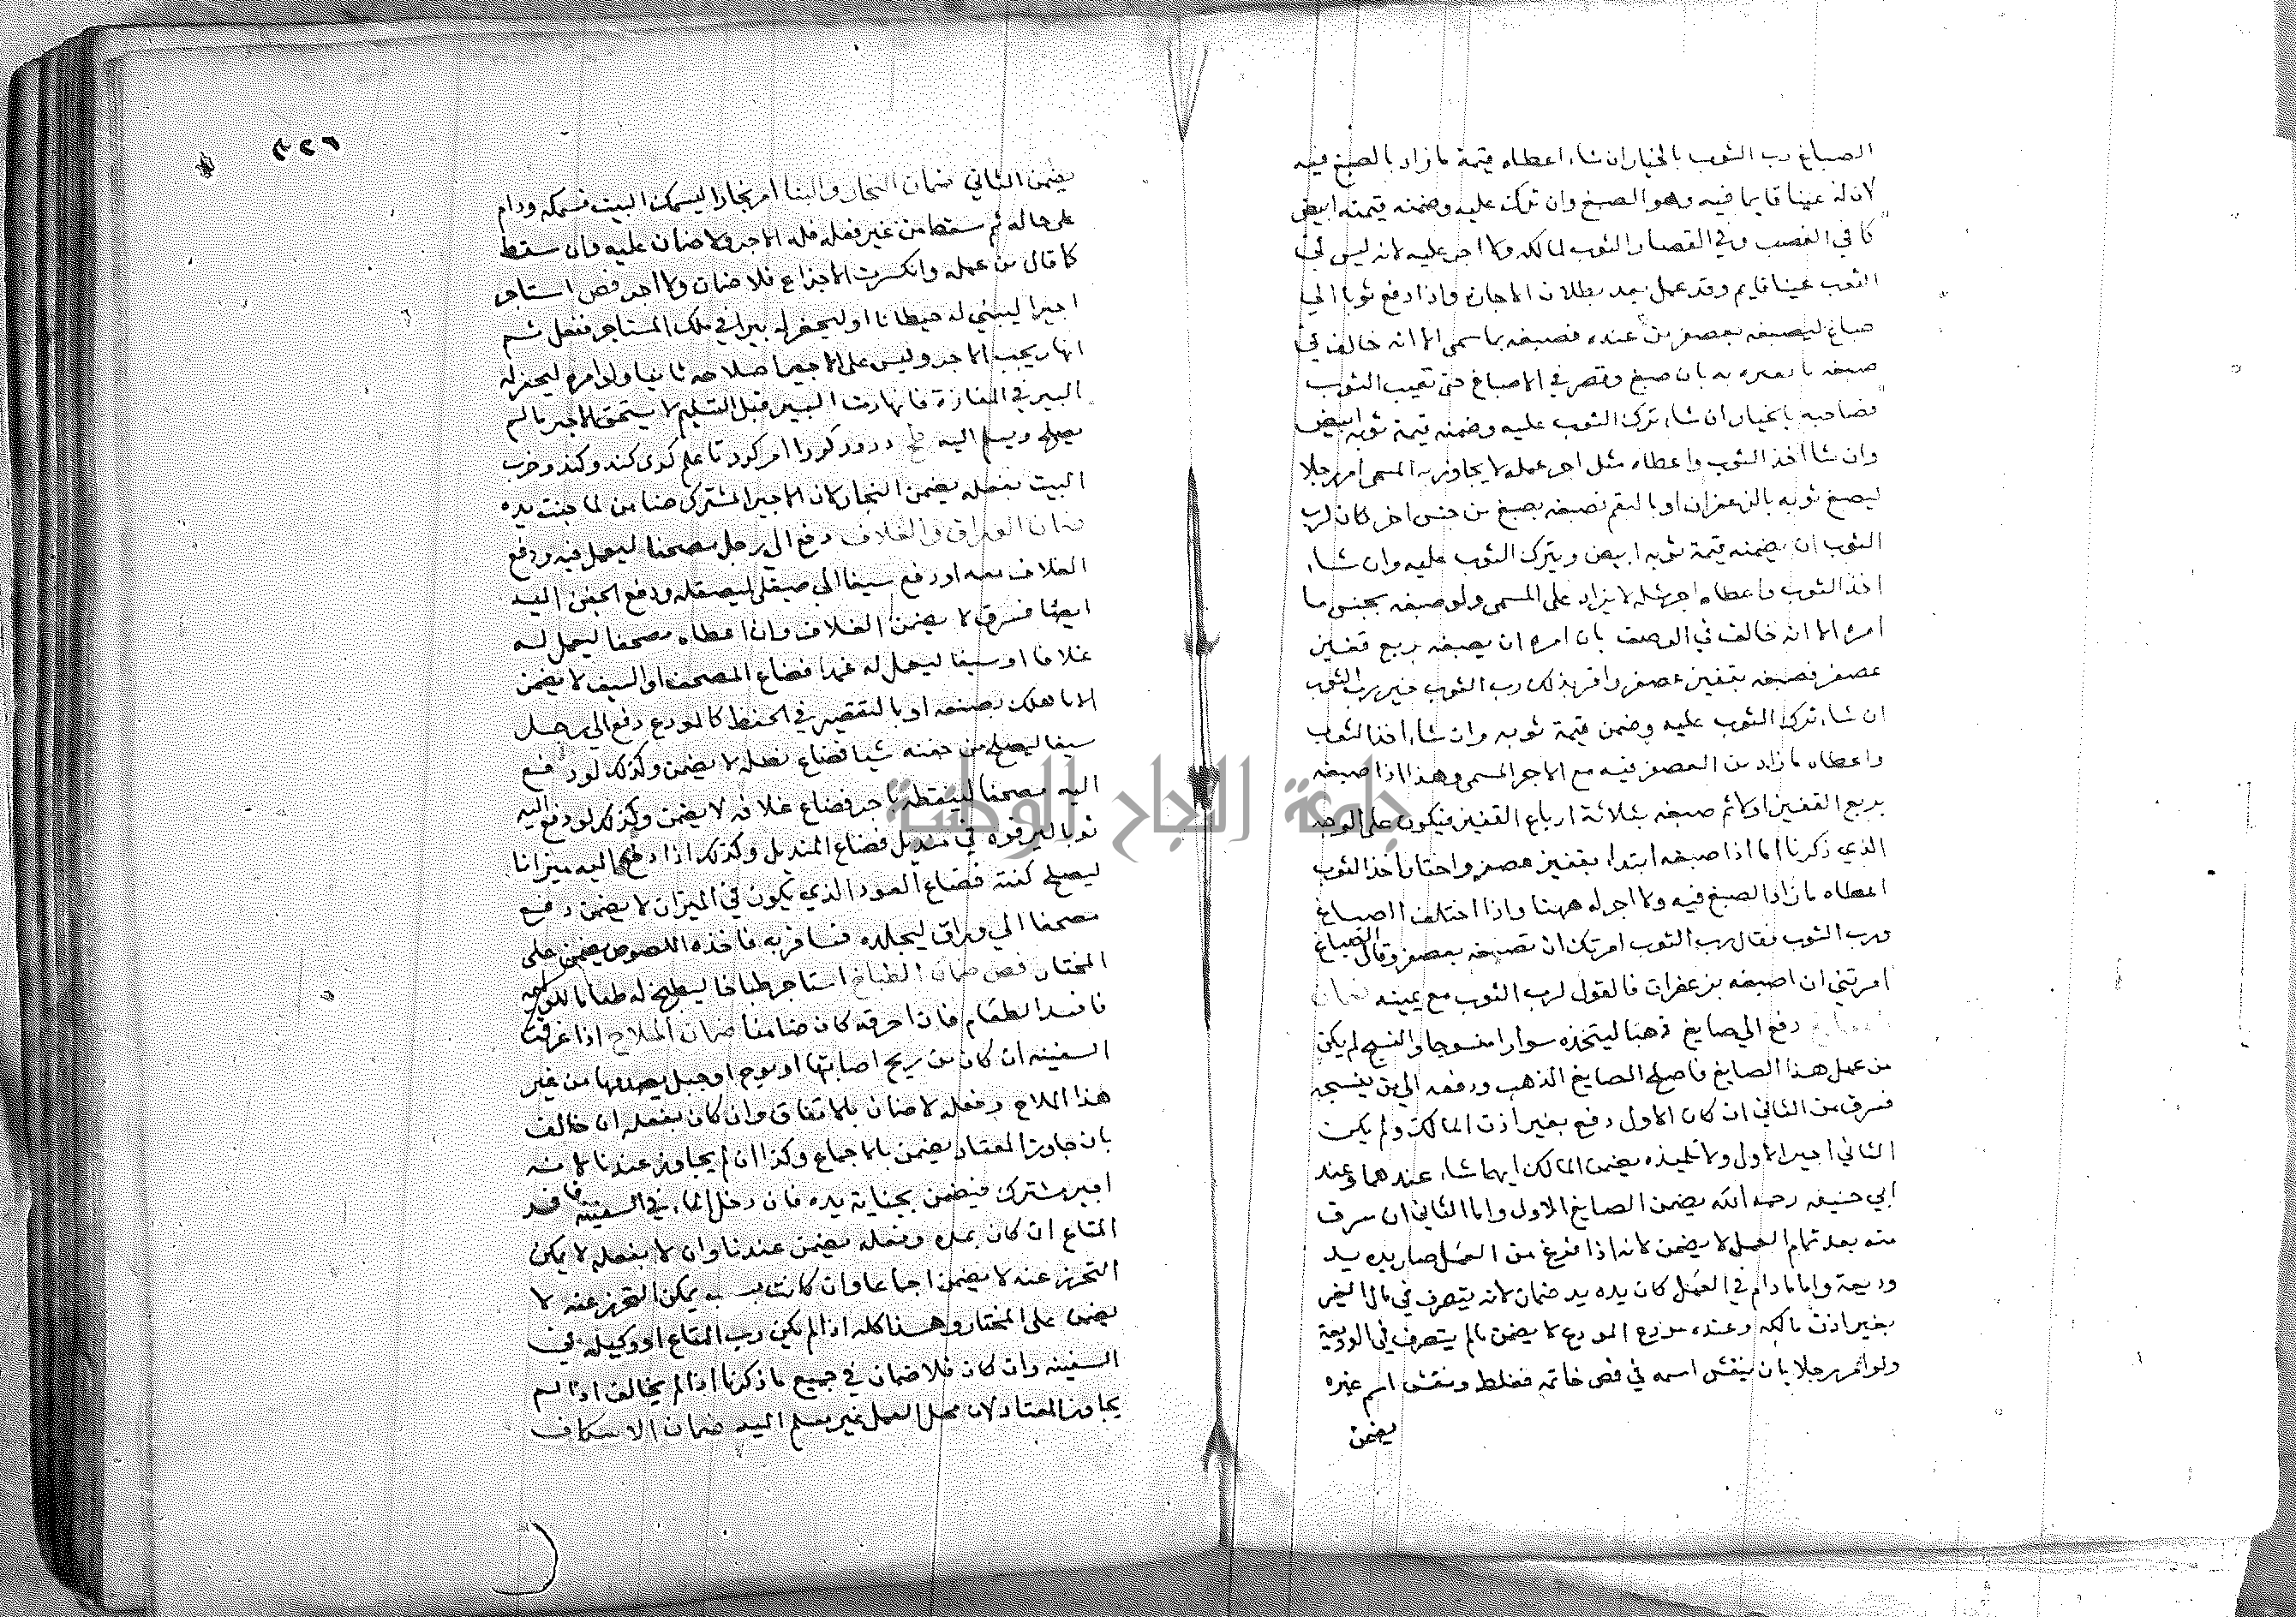 الصباغ رب الثوب بالخيار ان شاء اعطاه قيمة ما زاد بالصبغ فيه
لان له عينا قايما فيه وهو الصبغ وان ترك عليه وضمنه قيمته ابيض
كما في الغصب وفي القصار الثوب لمالكه ولا اجر عليه لانه ليس في
الثوب عينا قايم وقد عمل بعد بطلان الاجارة واذا دفع ثوبا الى
صباغ ليصبغه بعصفر من عنده فصبغه بما سمى الا انه خالف في
صبغه ما يعيره به بان صبغ وقصر في الاصباغ حتى تعيب الثوب
فصاحبه بالخيار ان شاء ترك الثوب عليه وضمنه قيمة ثوبه ابيض
وان شا اخذ الثوب واعطاه مثل اجر عمله لا يجاوز به المسمى امر رجلا
ليصبغ ثوبه بالزعفران او بالبقم فصبغه بصبغ من جنس اخر كان لرب
الثوب ان يضمنه قيمة ثوبه ابيض ويترك الثوب عليه وان شاء
اخذ الثوب واعطاه اجر مثله لا يزاد على المسمى ولو صبغه بجنس ما
امره الا انه خالف في الوصف بان امره ان يصبغه بربع قفيز
عصفر فصبغه بقفيز عصفر واقر بذلك رب الثوب خير رب الثوب
ان شاء ترك الثوب عليه وضمن قيمة ثوبه وان شاء اخذ الثوب
واعطاه ما زاد من العصفر فيه مع الاجر المسمى وهذا اذا صبغه
بربع القفيز اولا ثم صبغه بثلاثة ارباع القفيز فيكون على الوجه
الذي ذكرنا اما اذا صبغه ابتداء بقفيز عصفر واختار اخذ الثوب
اعطاه ما زاد الصبغ فيه ولا اجر له ههنا واذا اختلف الصباغ
ورب الثوب فقال رب الثوب امرتك ان تصبغه بعصفر وقال الصباغ
امرتني ان اصبغه بزعفران فالقول لرب الثوب مع يمينه ضمان
دفع الى صايغ ذهبا ليتخذه سوارا منسوجا والنسج لم يكن
من عمل هذا الصايغ فاصلح الصايغ الذهب ودفعه الى من ينسجه
فسرق من الثاني ان كان الاول دفع بغير اذن المالك ولم يكن
الثاني اجير الاول ولا تلميذه يضمن المالك ايهما شاء عندهما وعند
ابي حنيفه رحمه الله يضمن الصايغ الاول واما الثاني ان سرق
منه بعد تمام العمل لا يضمن لانه اذا فرغ من العمل صار يده يد
وديعة واما ما دام في العمل كان يده يد ضمان لانه يتصرف في مال الغير
بغير اذن مالكه وعنده مودع المودع لا يضمن ما لم يتصرف في الوديعة
ولو امر رجلا بان ينقش اسمه في فص خاتمه فغلط ونقش اسم غيره
يضمن
٣٢٦
يضمن الثاني ضمان النجار والبنا امر نجارا ليسمك البيت فسمكه ودام
على حاله ثم سقط من غير فعله فله الاجر ولا ضمان عليه وان سقط
كما قال من عمله وانكسرت الاجذاع فلا ضمان ولا اجر فص استاجر
اجيرا ليبني له حيطانا او ليحفر له بيرا في ملك المستاجر ففعل ثم
انهار يجب الاجر وليس على الاجير اصلاحه ثانيا ولو امره ليحفر له
البير في المفازة فانهارت البير قبل التسليم لا يستحق الاجر ما لم
يصلح ويسلم اليه درودكر را امر كرد تا علم
البيت بفعله يضمن النجار لان الاجير المشترك ضامن لما جنت يده
ضمان الوراق والغلاف دفع الى رجل مصحفا ليعمل فيه ودفع
الغلاف معه او دفع سيفا الى صيقلي ليصقله ودفع الجفن اليه
ايضا فسرق لا يضمن الغلاف وان اعطاه مصحفا ليعمل له
غلافا او سيفا ليعمل له غمدا فضاع المصحف او السيف لا يضمن
الا ما هلك بصنعه او بالتقصير في الحفظ كالمودع دفع الى رجل
سيفا ليصلح من جفنه شيا فضاع نصله لا يضمن وكذلك لو دفع
اليه مصحفا لينقطه باجر فضاع غلافه لا يضمن وكذلك لو دفع اليه
ثوبا ليرفوه في منديل فضاع المنديل وكذلك اذا دفع اليه ميزانا
ليصلح كفته فضاع العود الذي يكون في الميزان لا يضمن دفع
مصحفا الى وراق ليجلده فسافر به فاخذه اللصوص يضمن على
المختار فص ضمان الطباخ استاجر طباخا ليطبخ له طعاما للوليمه
فافسد الطعام فان احرقه كان ضامنا ضمان الملاح اذا غرقت
السفينه ان كان من ريح اصابتها او موج او جبل من غير
هذا الملاح وفعله لا ضمان بالاتفاق وان كان بفعله ان خالف
بان جاوز المعتاد يضمن بالاجماع وكذا ان لم يجاوز عندنا لانه
اجير مشترك فيضمن بجناية يده فان دخل الماء في السفينه فافسد
المتاع ان كان بمده وفعله يضمن عندنا وان لا بفعله لا يمكن
التحرز عنه لا يضمن اجماعا وان كانت بسبب يمكن التحرز عنه لا
يضمن على المختار وهذا كله اذا لم يكن رب المتاع او وكيله في
السفينه وان كان فلا ضمان في جميع ما ذكرنا اذا لم يخالف اذا لم
يجاوز المعتاد لان محل العمل غير مسلم اليه ضمان الاسكاف
جامعة النجاح الوطنية